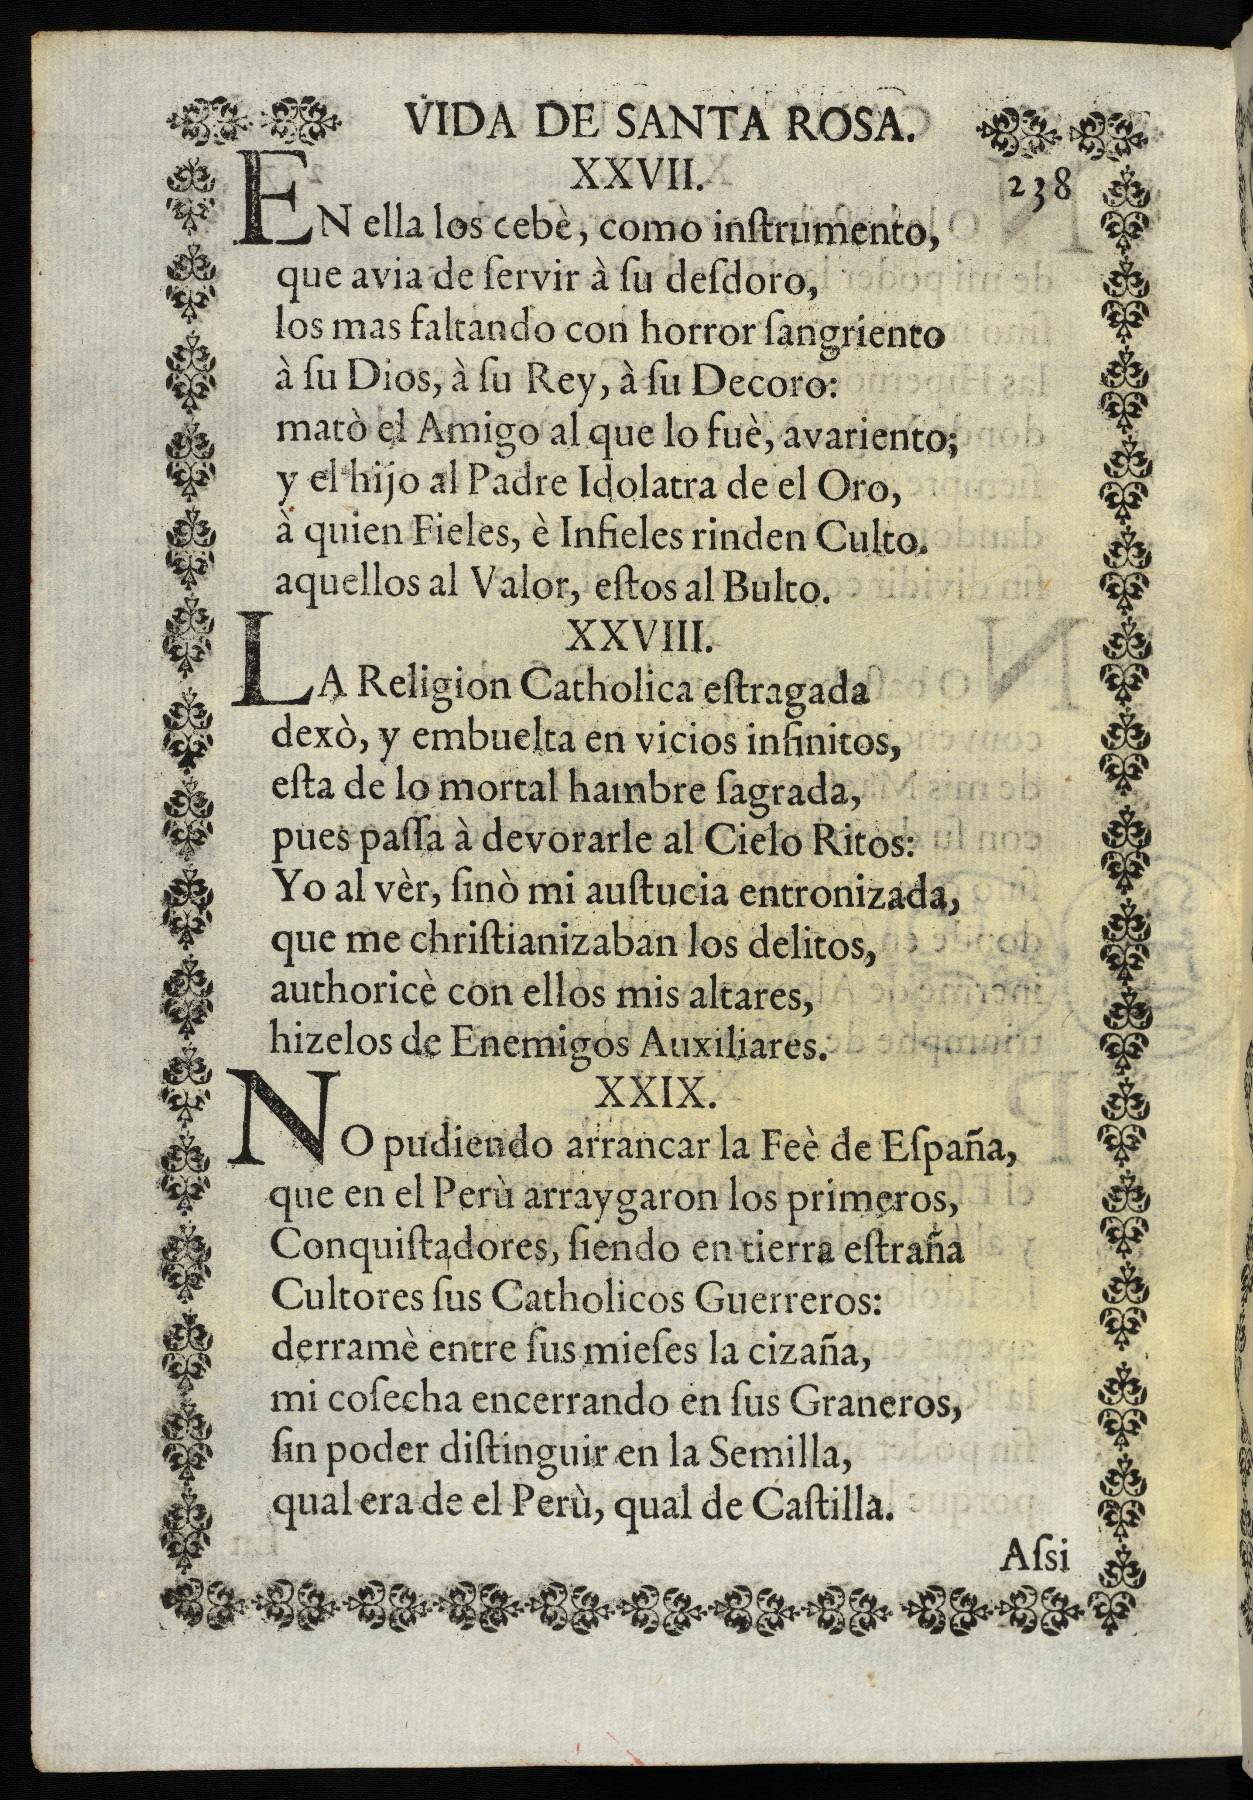 VIDA DE SANTA ROSA.
XXVII.
238
EN ella los cebè, como inſtrumento,
que avia de ſervir à ſu deſdoro,
los mas faltando con horror ſangriento
à ſu Dios, à ſu Rey, à ſu Decoro:
matò el Amigo al que lo fuè, avariento;
y el hijo al Padre Idolatra de el Oro,
à quien Fieles, è Infieles rinden Culto.
aquellos al Valor, eſtos al Bulto.
XXVIII.
LA Religion Catholica eſtragada
dexò, y embuelta en vicios infinitos,
eſta de lo mortal hambre ſagrada,
pues paſſa à devorarle al Cielo Ritos:
Yo al vèr, ſinò mi auſtucia entronizada,
que me chriſtianizaban los delitos,
authoricè con ellos mis altares,
hizelos de Enemigos Auxiliares.
XXIX.
NO pudiendo arrancar la Feè de Eſpaña,
que en el Perù arraygaron los primeros,
Conquiſtadores, ſiendo en tierra eſtraña
Cultores ſus Catholicos Guerreros:
derramè entre ſus mieſes la cizaña,
mi coſecha encerrando en ſus Graneros,
ſin poder diſtinguir en la Semilla,
qual era de el Perù, qual de Caſtilla.
Aſsi